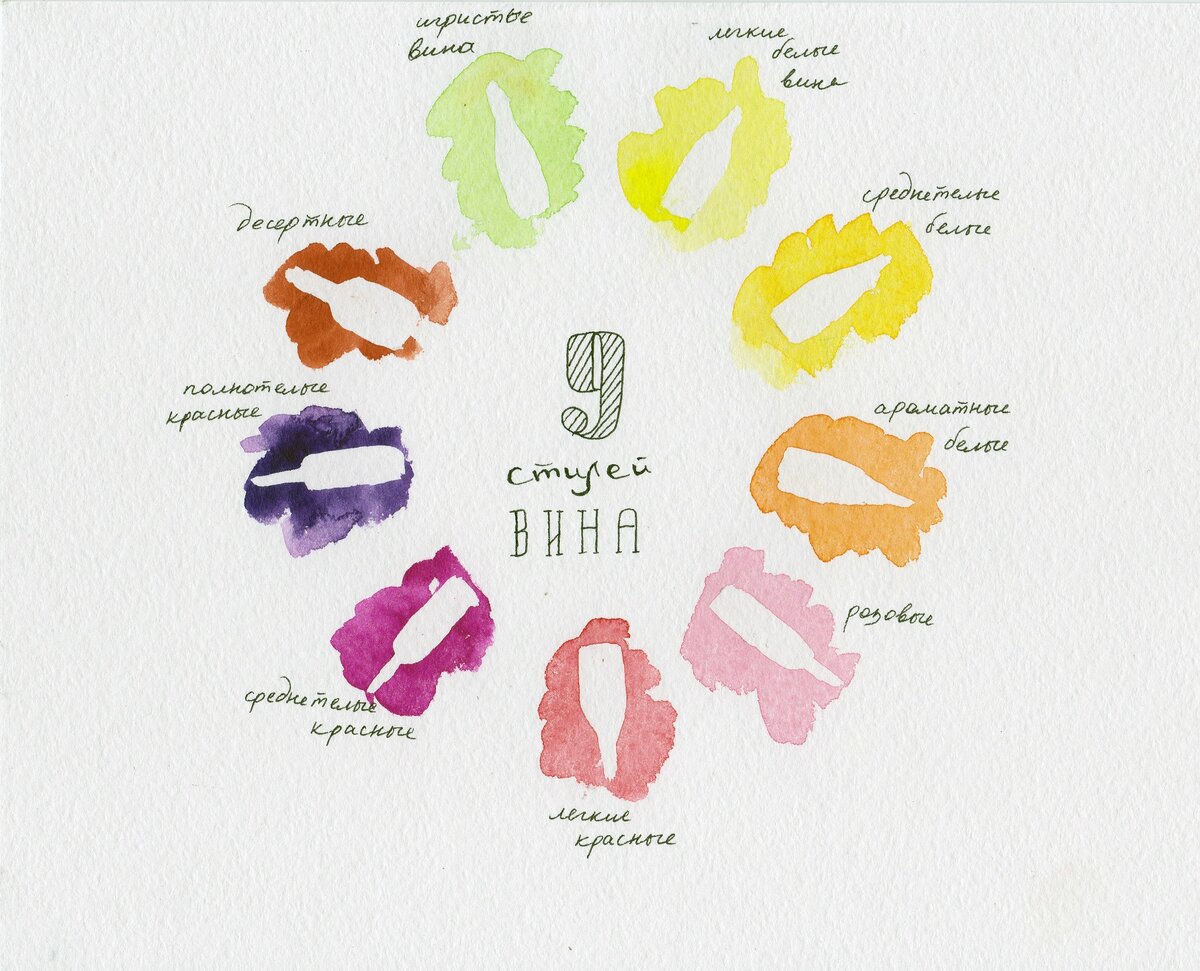 игристые
вина
легкие
белые
вина
среднетелые
белые
ароматные
белые
розовые
легкие
красные
среднетелые
красные
полнотелые
красные
десертные
9
стилей
ВИНА